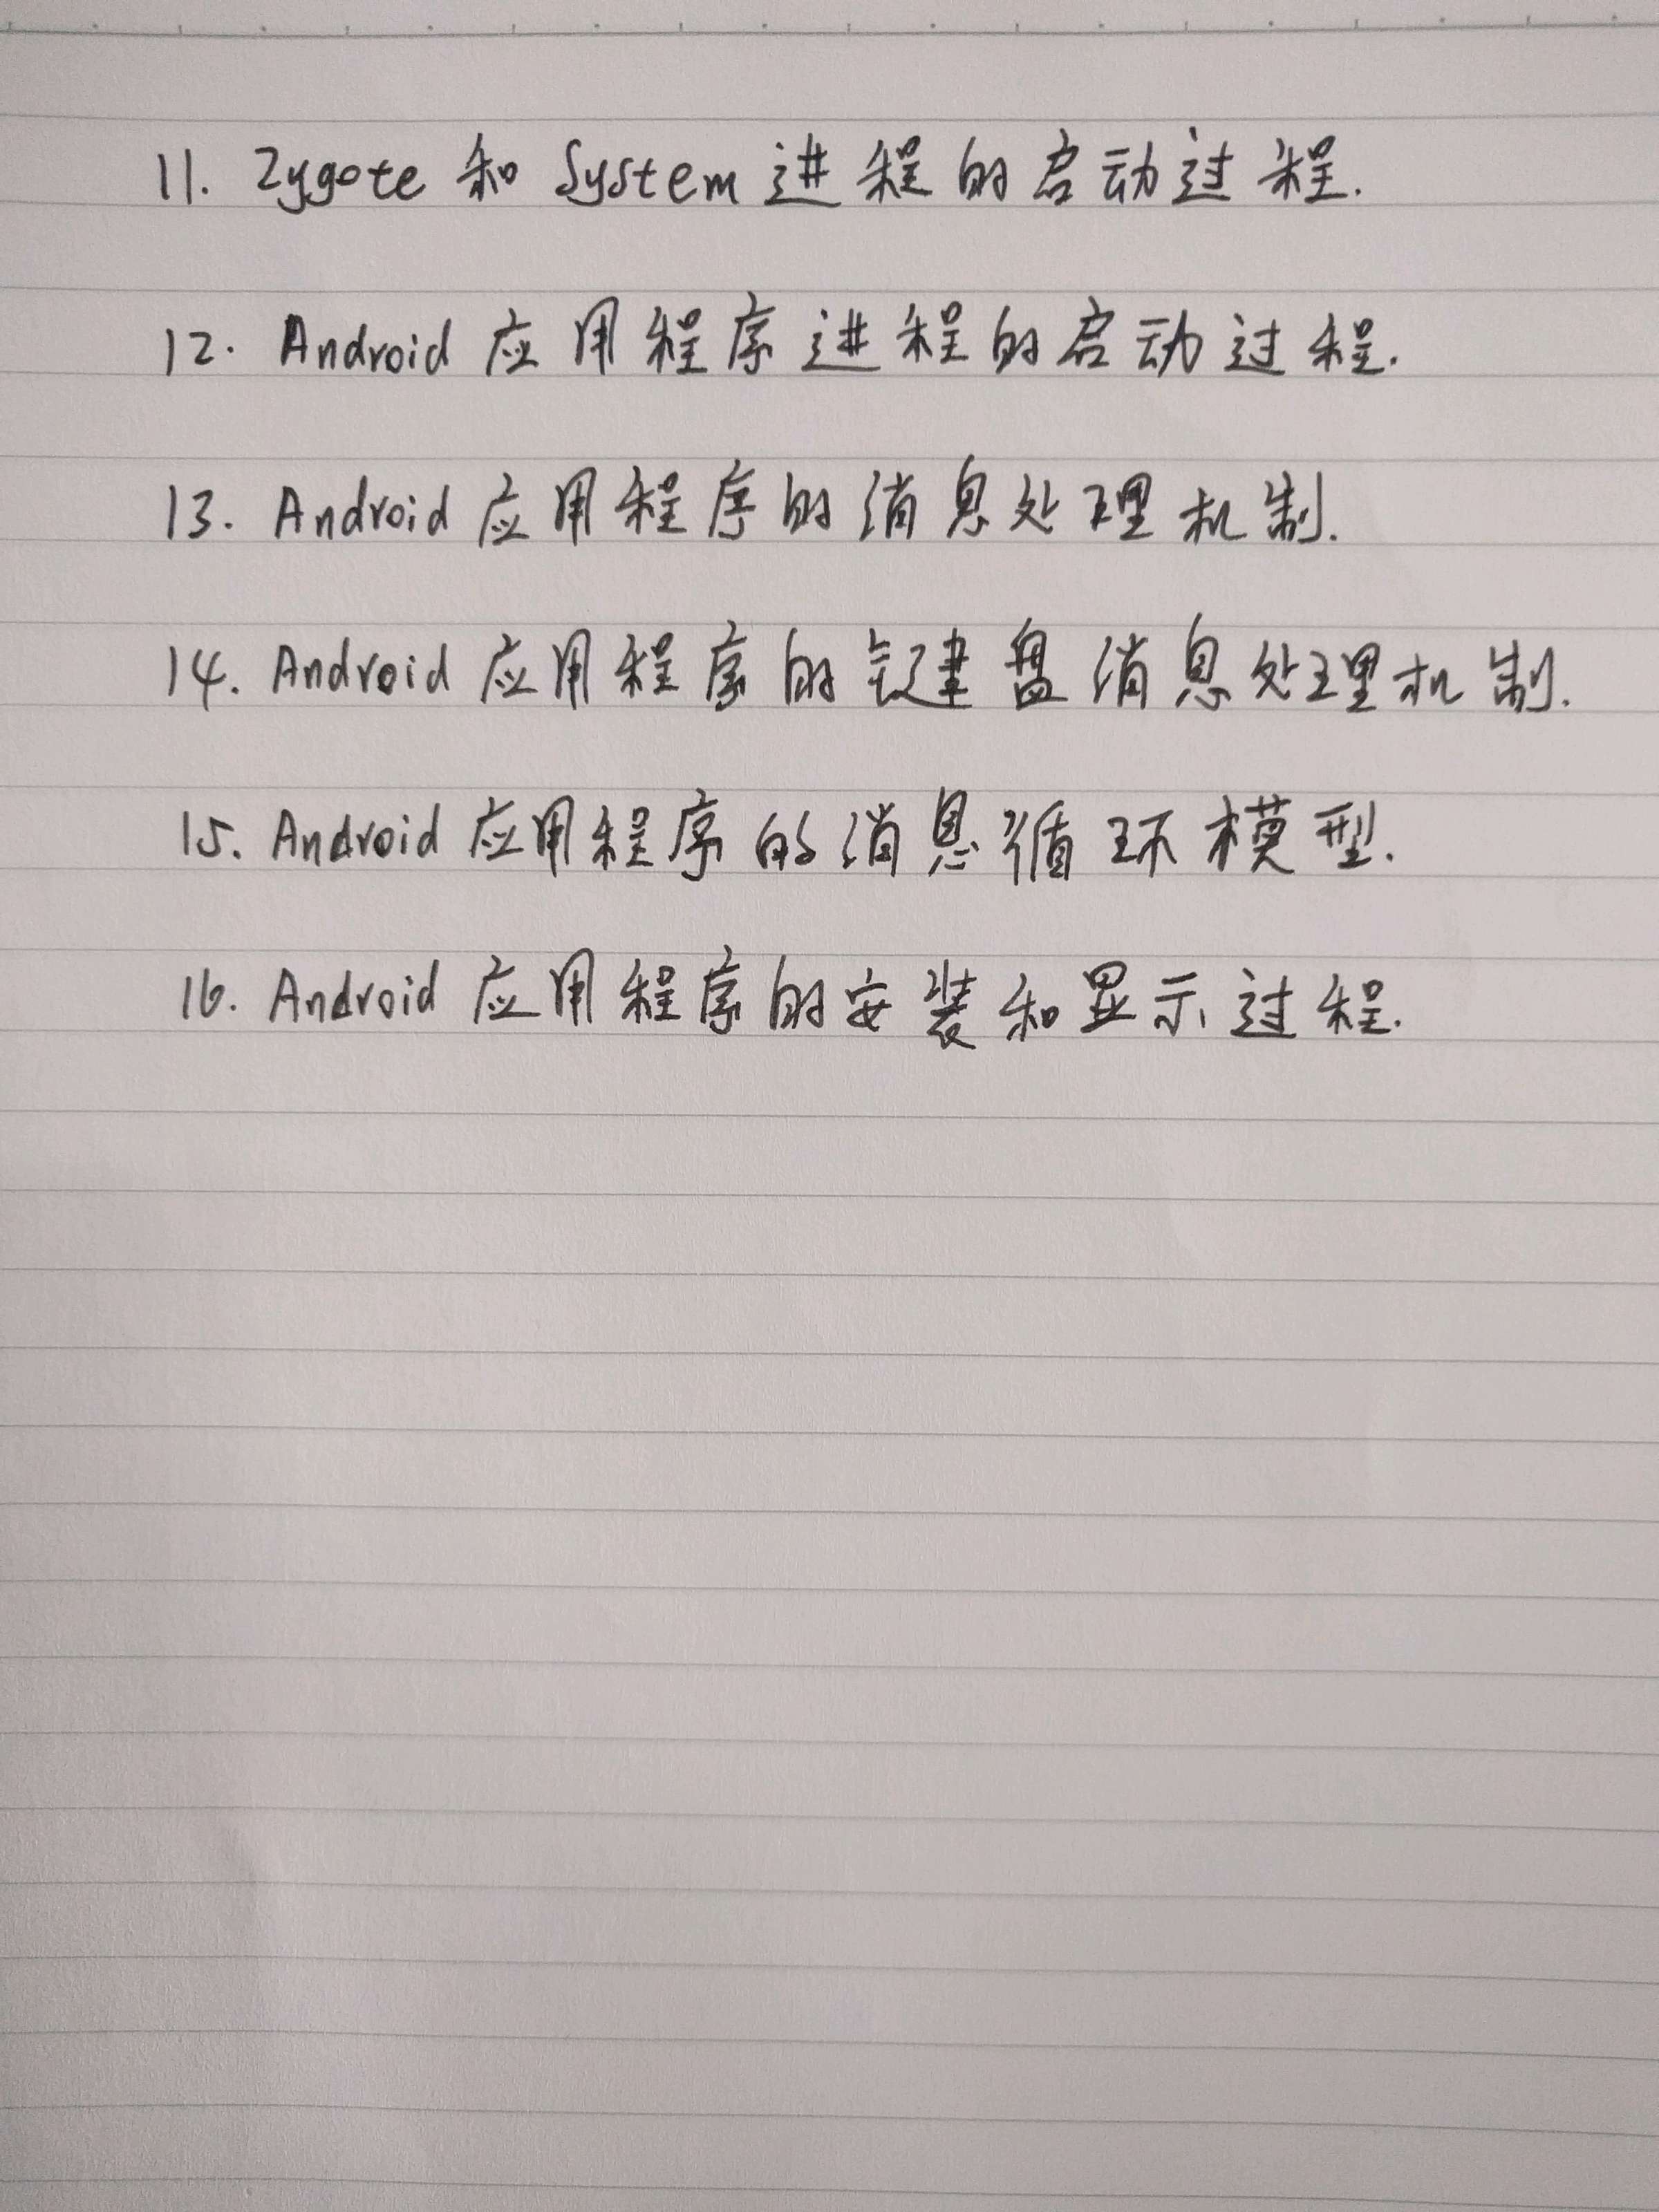 11. Zygote 和 System 进程的启动过程.
12. Android 应用程序进程的启动过程.
13. Android 应用程序的消息处理机制.
14. Android 应用程序的键盘消息处理机制.
15. Android 应用程序的消息循环模型.
16. Android 应用程序的安装和显示过程.